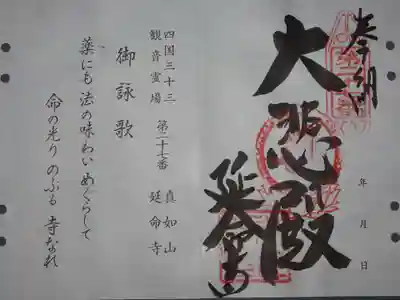 奉納
大悲殿
延命寺
年 月 日
四国三十三
観音霊場 第二十七番 真如山 延命寺
御詠歌
薬にも 法の味わい めぐらして
命の光り のぶる 寺なれ